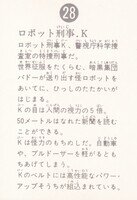 28
ロボット刑事、K
ロボット刑事K、警視庁科学捜
査室の特捜刑事だ。
世界征服をたくらむ、暗黒集団
バドーが送り出す怪ロボットを
あいてに、ひっしのたたかいが
はじまる。
Kの目は人間の視力の5倍。
50メートルはなれた新聞を読む
ことができる。
Kは怪力のもちぬしだ。自動車
や、ブルドーザーを軽がるとも
ちあげてしまう。
Kのベルトには高性能なパワー・
アップそうちが組込まれている。